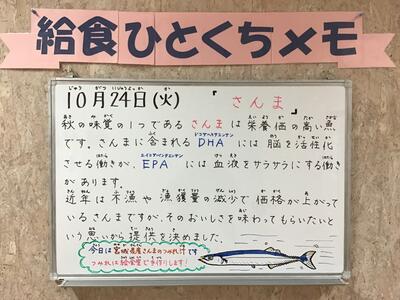 給食ひとくちメモ
10月24日(火) 『さんま
秋の味覚の1つである さんま は 栄養価の高い魚
です。さんまに含まれる DHA には 脳を活性化
させる働きが、EPA には血液をサラサラにする働き
が あります。
近年は 不漁や漁獲量の減少で価格が上がって
いるさんまですが、そのおいしさを味わってもらいたいと
いう思いから提供を決めました。
今日は宮城県産さんまのつみれ汁です
つみれは給食室で手作りします!